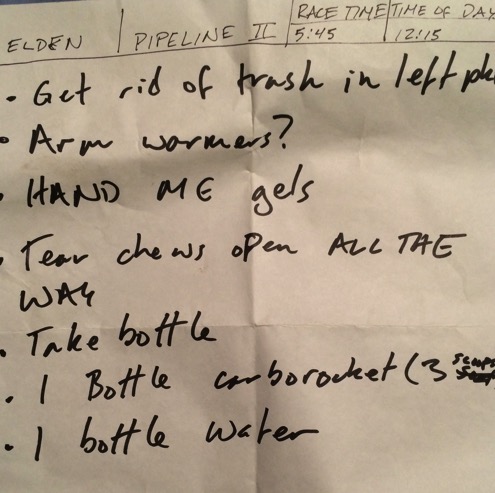 ELDEN | PIPELINE II | RACE TIME 5:45 | TIME OF DAY 12:15
• Get rid of trash in left
• Arm warmers?
• HAND ME gels
• Tear chews open ALL THE
WAY
• Take bottle
• 1 Bottle carborocket (3 scoops
• 1 bottle water